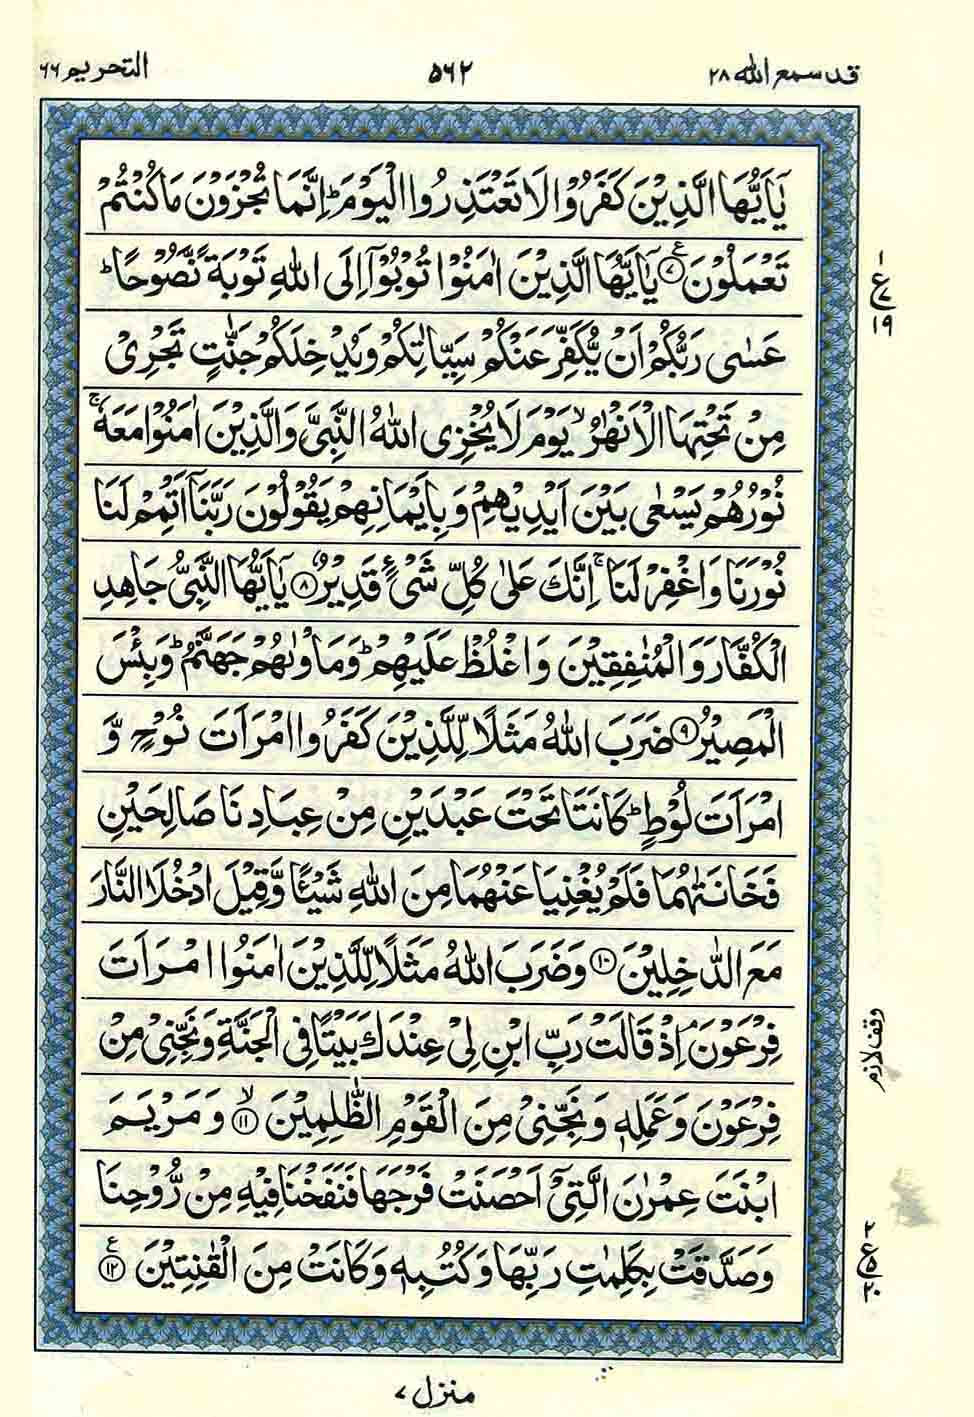 قد سمع الله ٢٨
٥٦٢
التحريم ٦٦
يٰۤاَيُّهَا الَّذِيْنَ كَفَرُوْا لَا تَعْتَذِرُوا الْيَوْمَ ؕ اِنَّمَا تُجْزَوْنَ مَا كُنْتُمْ
تَعْمَلُوْنَ ﴿٧﴾ ع يٰۤاَيُّهَا الَّذِيْنَ اٰمَنُوْا تُوْبُوْۤا اِلَى اللّٰهِ تَوْبَةً نَّصُوْحًا ؕ
عَسٰى رَبُّكُمْ اَنْ يُّكَفِّرَ عَنْكُمْ سَيِّاٰتِكُمْ وَيُدْخِلَكُمْ جَنّٰتٍ تَجْرِيْ
مِنْ تَحْتِهَا الْاَنْهٰرُ ۙ يَوْمَ لَا يُخْزِى اللّٰهُ النَّبِيَّ وَالَّذِيْنَ اٰمَنُوْا مَعَهٗ ۚ
نُوْرُهُمْ يَسْعٰى بَيْنَ اَيْدِيْهِمْ وَبِاَيْمَانِهِمْ يَقُوْلُوْنَ رَبَّنَاۤ اَتْمِمْ لَنَا
نُوْرَنَا وَاغْفِرْ لَنَا ۚ اِنَّكَ عَلٰى كُلِّ شَيْءٍ قَدِيْرٌ ﴿٨﴾ يٰۤاَيُّهَا النَّبِيُّ جَاهِدِ
الْكُفَّارَ وَالْمُنٰفِقِيْنَ وَاغْلُظْ عَلَيْهِمْ ؕ وَمَاْوٰىهُمْ جَهَنَّمُ ؕ وَبِئْسَ
الْمَصِيْرُ ﴿٩﴾ ضَرَبَ اللّٰهُ مَثَلًا لِّلَّذِيْنَ كَفَرُوا امْرَاَتَ نُوْحٍ وَّ
امْرَاَتَ لُوْطٍ ؕ كَانَتَا تَحْتَ عَبْدَيْنِ مِنْ عِبَادِنَا صَالِحَيْنِ
فَخَانَتٰهُمَا فَلَمْ يُغْنِيَا عَنْهُمَا مِنَ اللّٰهِ شَيْـًٔا وَّقِيْلَ ادْخُلَا النَّارَ
مَعَ الدّٰخِلِيْنَ ﴿١٠﴾ وَضَرَبَ اللّٰهُ مَثَلًا لِّلَّذِيْنَ اٰمَنُوا امْرَاَتَ
فِرْعَوْنَ ۘ اِذْ قَالَتْ رَبِّ ابْنِ لِيْ عِنْدَكَ بَيْتًا فِى الْجَنَّةِ وَنَجِّنِيْ مِنْ
فِرْعَوْنَ وَعَمَلِهٖ وَنَجِّنِيْ مِنَ الْقَوْمِ الظّٰلِمِيْنَ ﴿١١﴾ ۙ وَمَرْيَمَ
ابْنَتَ عِمْرٰنَ الَّتِيْۤ اَحْصَنَتْ فَرْجَهَا فَنَفَخْنَا فِيْهِ مِنْ رُّوْحِنَا
وَصَدَّقَتْ بِكَلِمٰتِ رَبِّهَا وَكُتُبِهٖ وَكَانَتْ مِنَ الْقٰنِتِيْنَ ﴿١٢﴾ ع
١
ع
٧
١٩
وقف لازم
٢
ع
٥
٢٠
منزل ٧